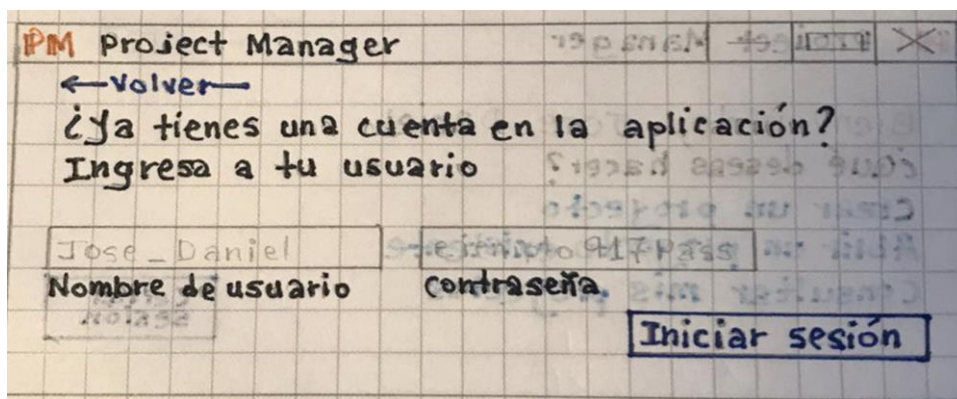 PM Project Manager
Volver
¿Ya tienes una cuenta en la aplicación?
Ingresa a tu usuario
Jose_Daniel
Nombre de usuario contraseña
Iniciar sesión